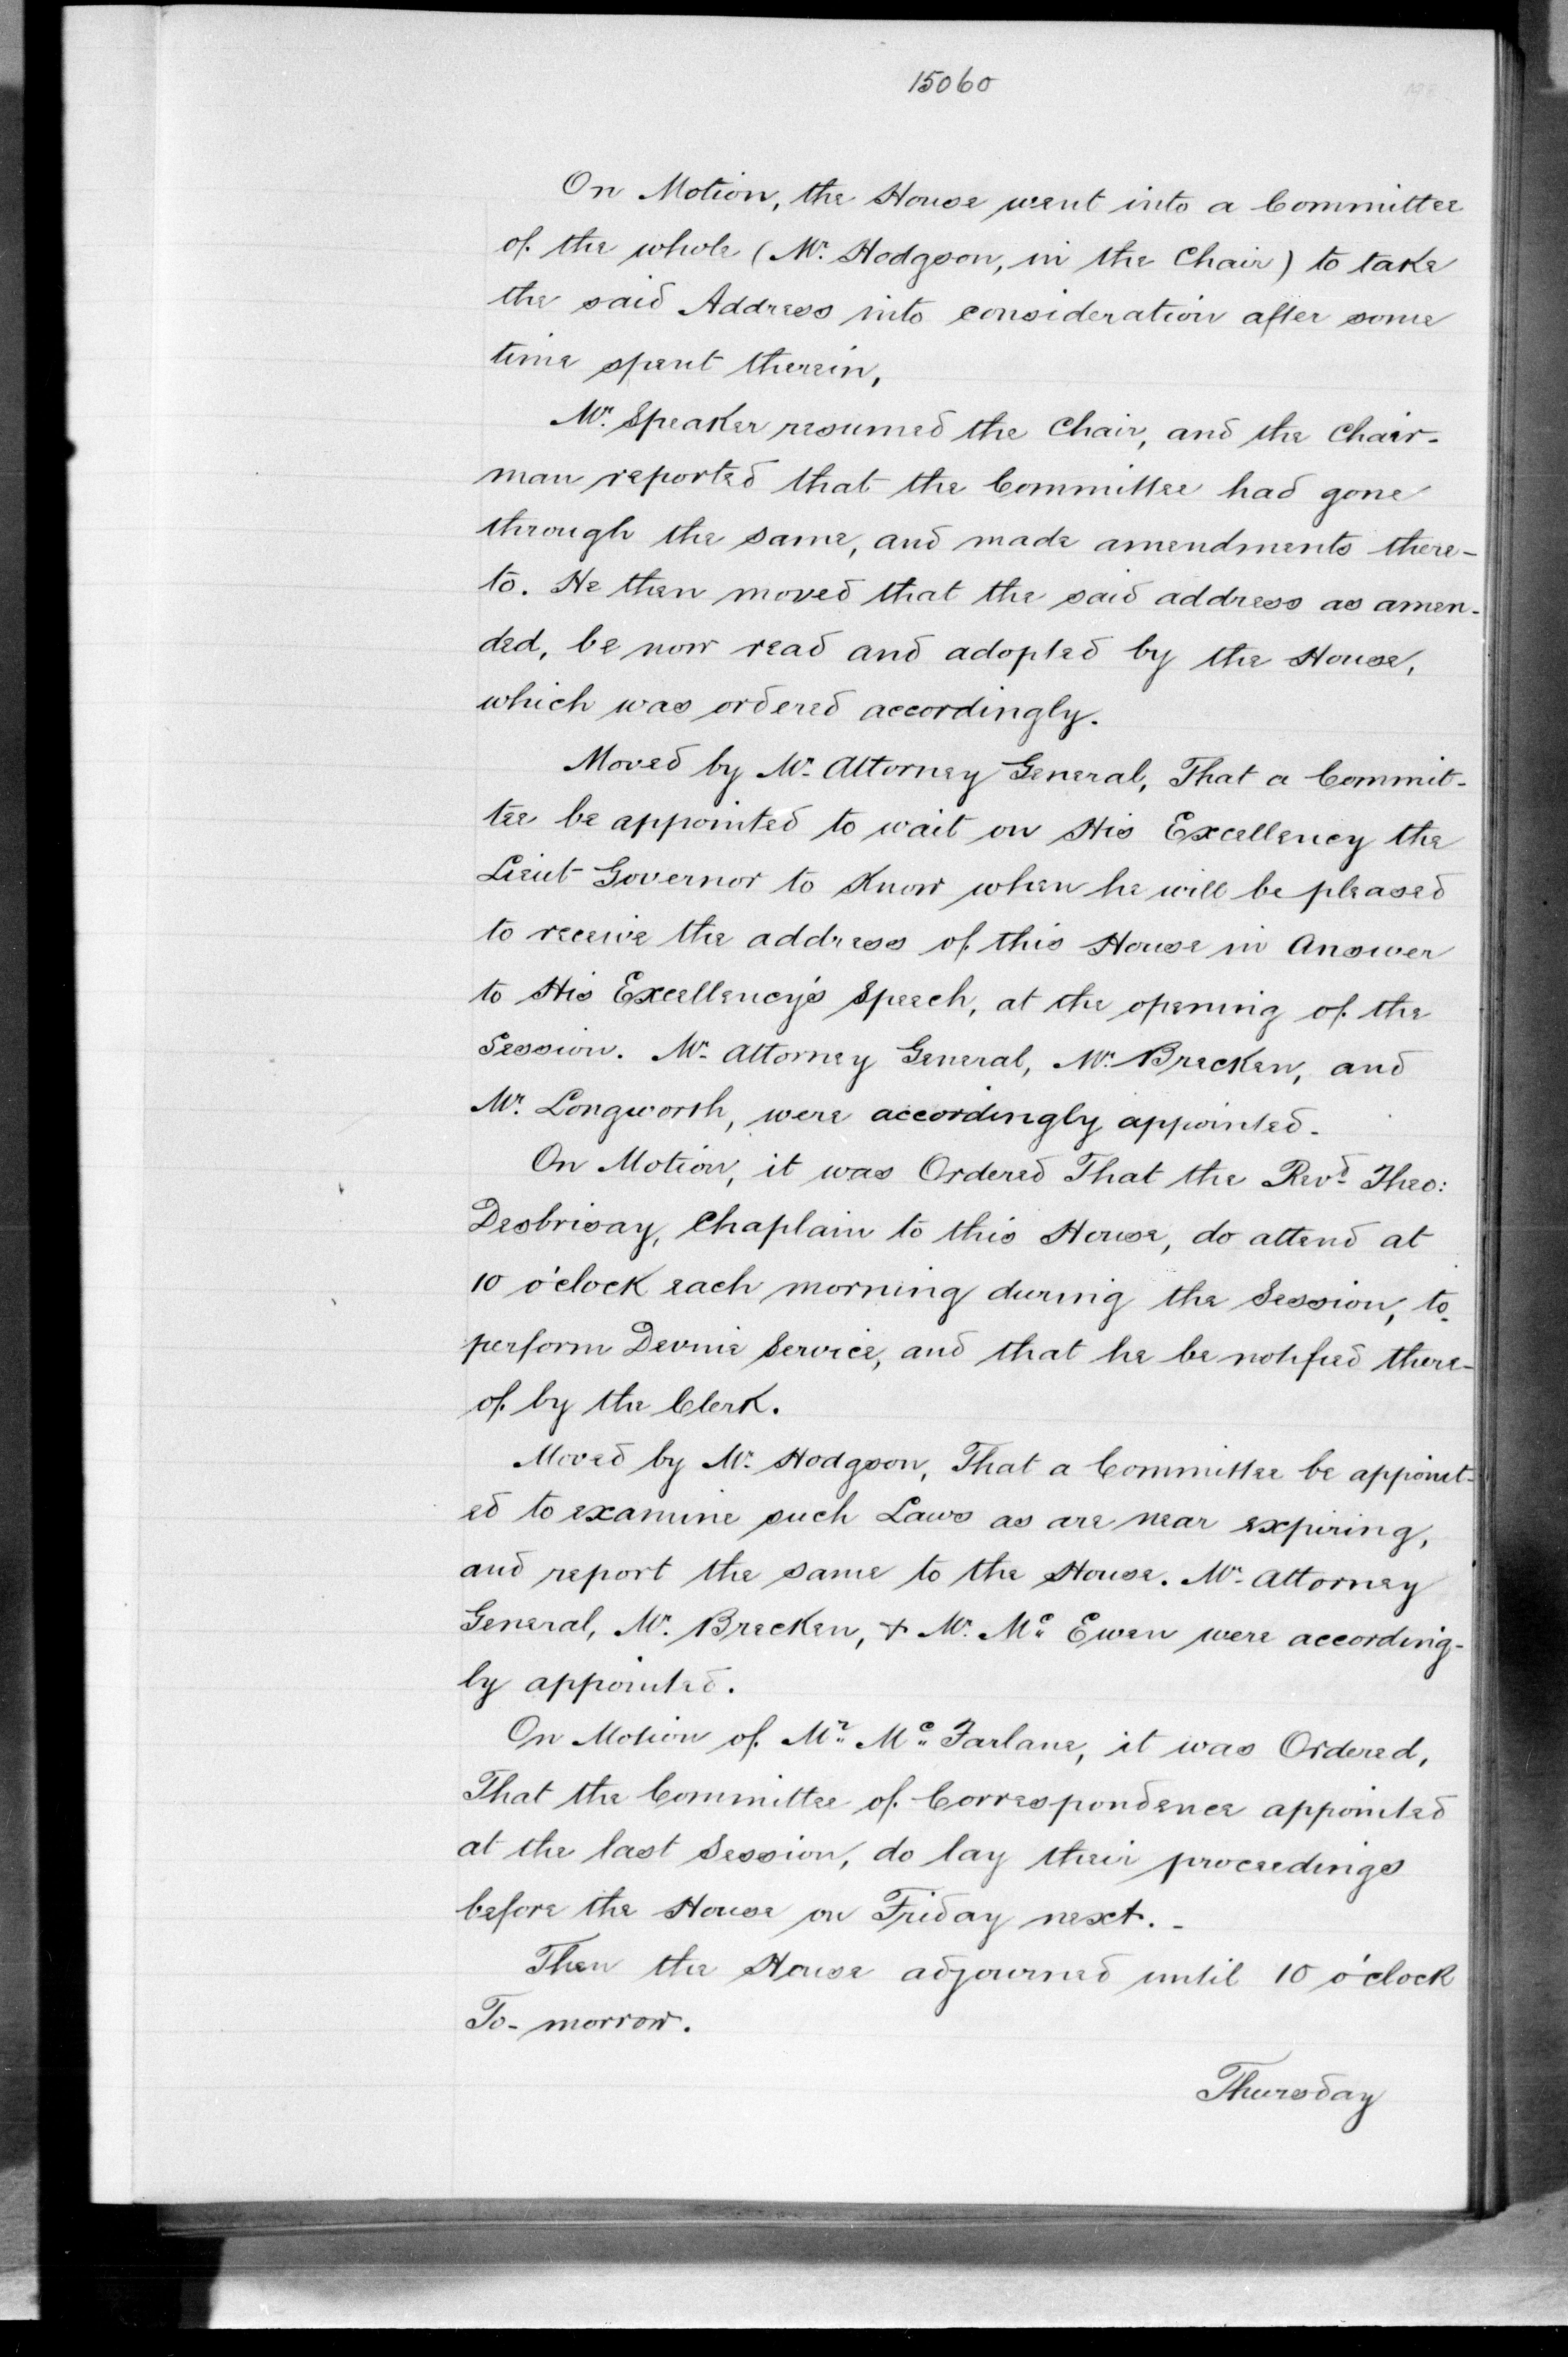 15060
On Motion, the House went into a Committee
of the whole (Mr. Hodgson, in the Chair) to take
the said Address into consideration after some
time spent therein,
Mr. Speaker resumed the Chair, and the Chair-
man reported that the Committee had gone
through the same, and made amendments there-
to. He then moved that the said address as amen-
ded, be now read and adopted by the House,
which was ordered accordingly.
Moved by Mr. Attorney General, That a Commit-
tee be appointed to wait on His Excellency the
Lieut Governor to Know when he will be pleased
to receive the address of this House in Answer
to His Excellency's Speech, at the opening of the
Session. Mr. Attorney General, Mr. Brecken, and
Mr. Longworth, were accordingly appointed.
On Motion, it was Ordered That the Revd. Theo:
Desbrisay, Chaplain to this House, do attend at
10 o'clock each morning during the Session, to
perform Devine Service, and that he be notified there-
of by the Clerk.
Moved by Mr. Hodgson, That a Committee be appoint-
ed to examine such Laws as are near expiring,
and report the same to the House. Mr. Attorney
General, Mr. Brecken, + Mr. Mc Ewen were according-
ly appointed.
On Motion of Mr. Mc Farlane, it was Ordered,
That the Committee of Correspondence appointed
at the last Session, do lay their proceedings
before the House on Friday next. -
Then the House adjourned until 10 o'clock
To-morrow.
Thursday